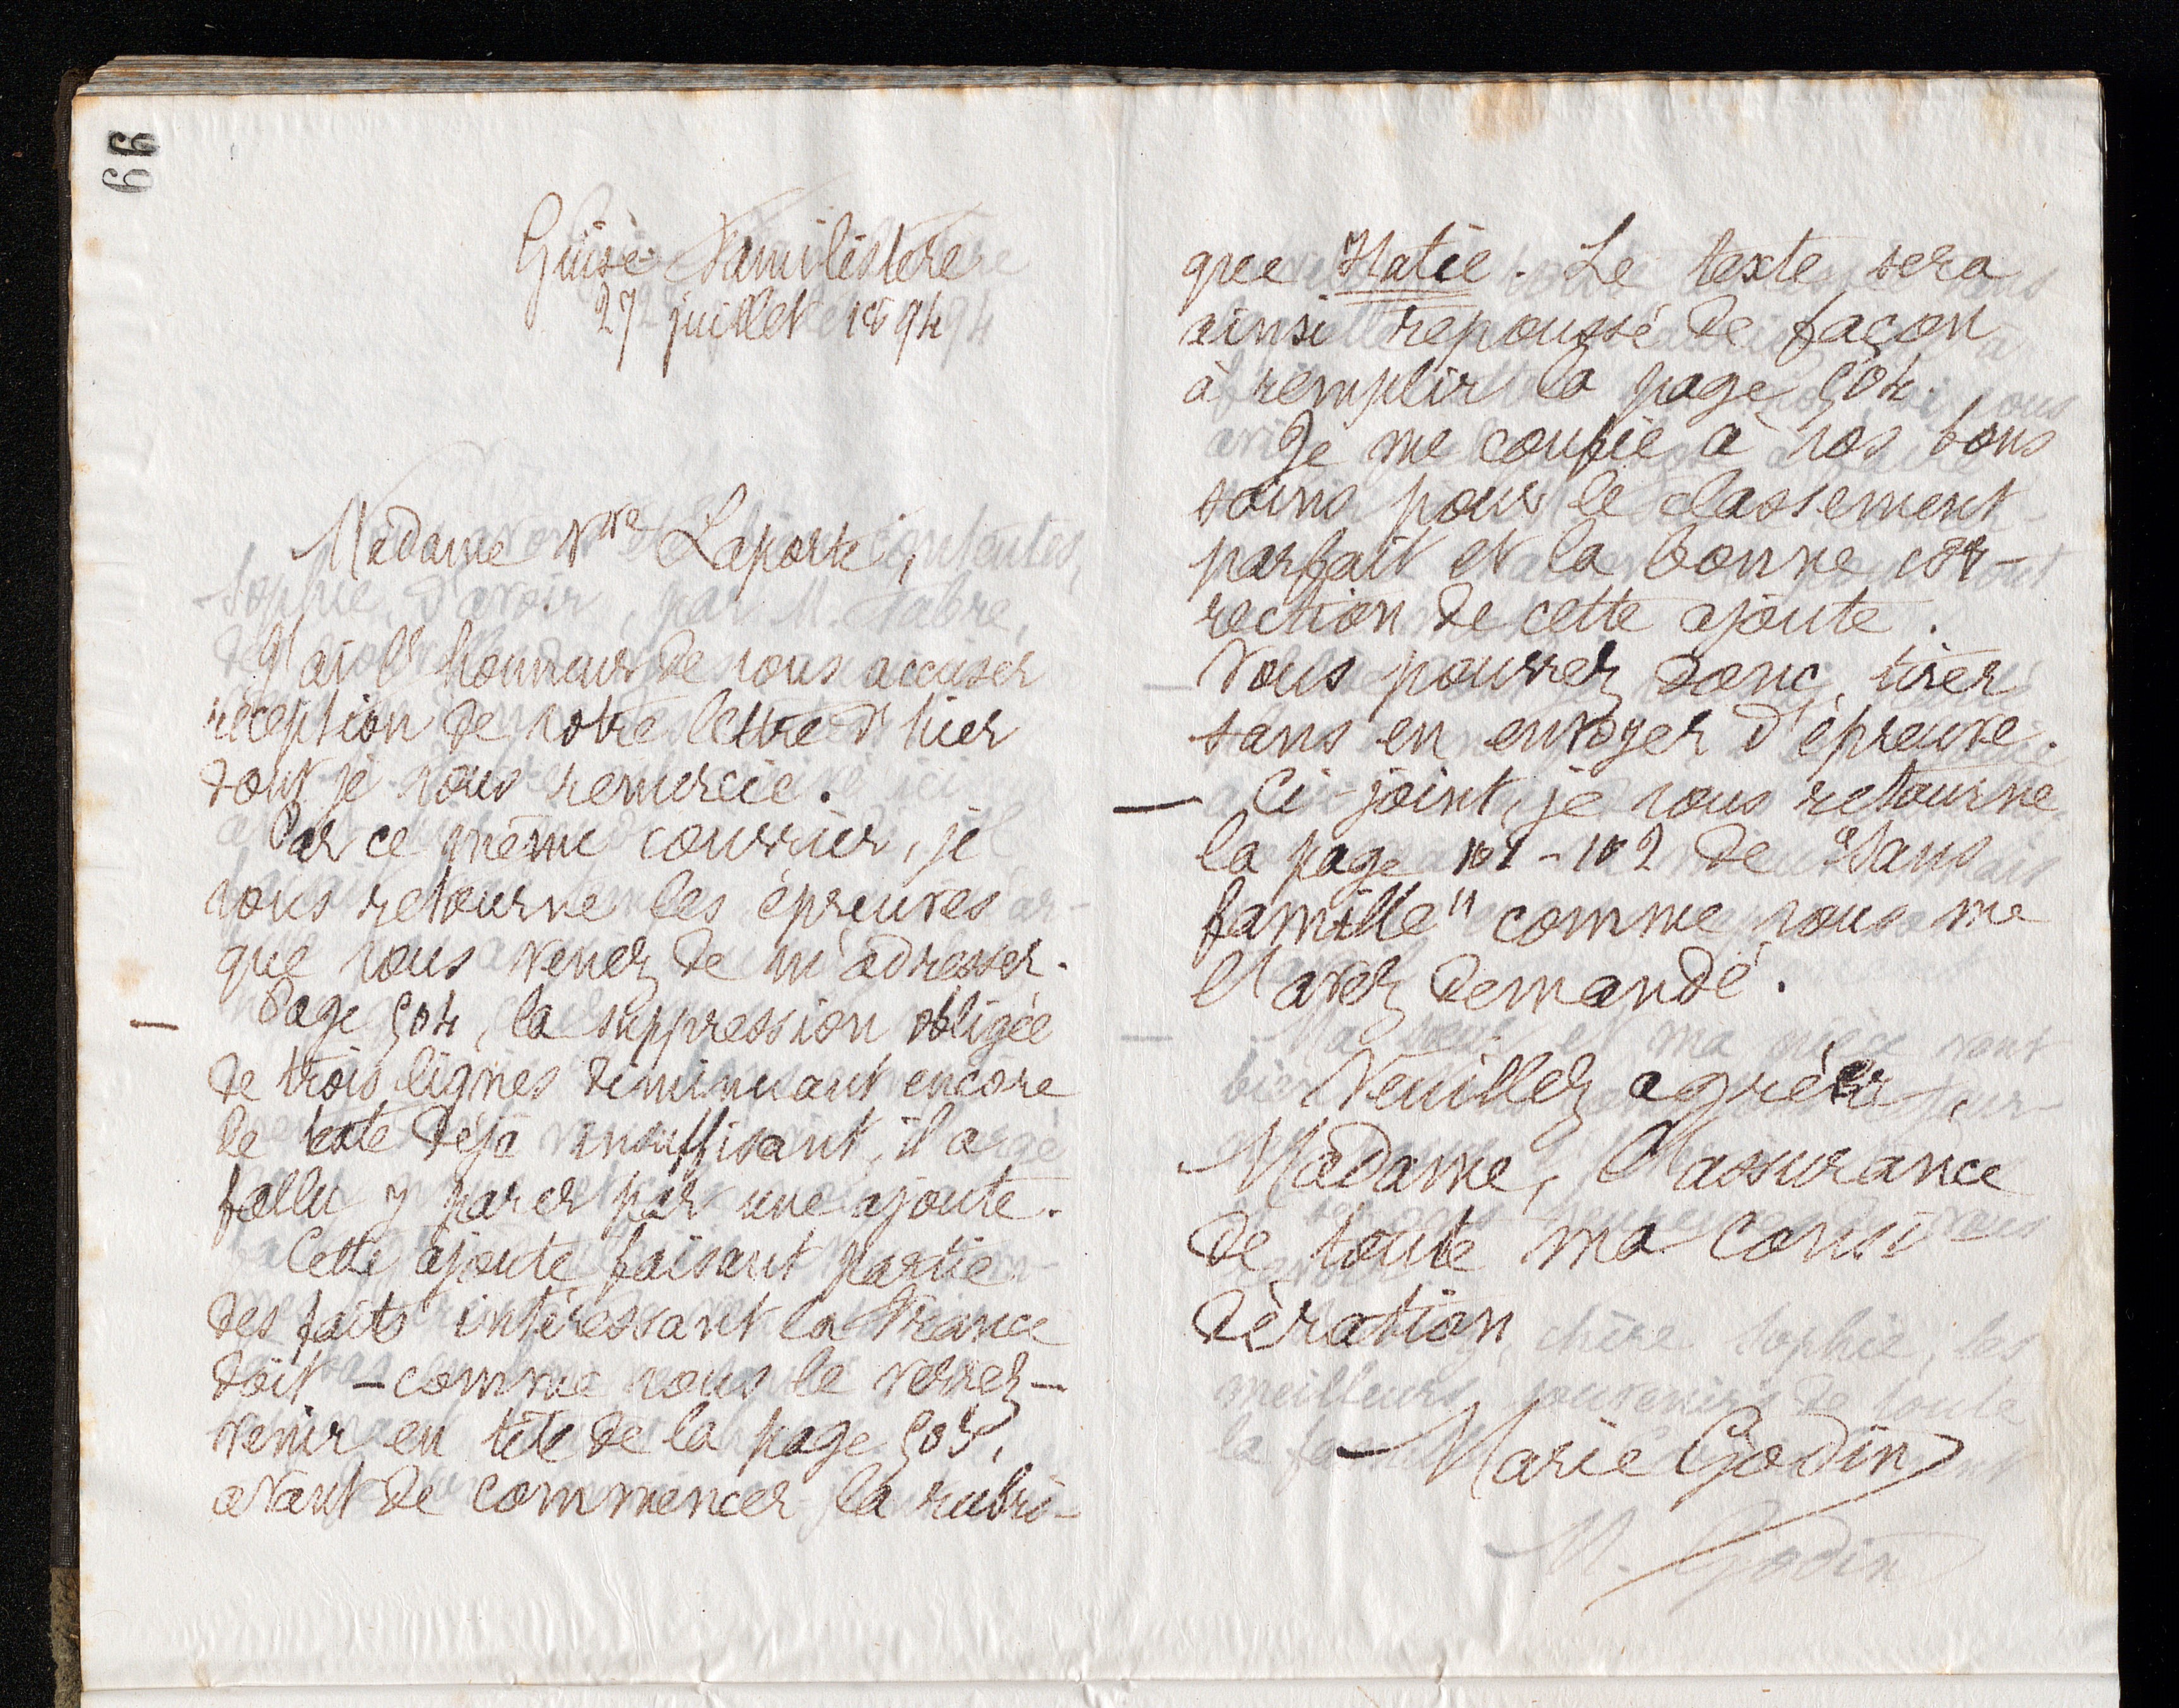 99
Guise Familistère
27 juillet 1894
Madame Vve Laporte,
J'ai l'honneur de vous accuser
réception de votre lettre d'hier
dont je vous remercie.
Par ce même courrier, je
vous retourne les épreuves
que vous venez de m'adresser.
— Page 504, la suppression obligée
de trois lignes diminuant encore
le texte déjà insuffisant, il a
fallu y parer par une ajoute.
Cette ajoute faisant partie
des faits intéressant la France
doit — comme vous le verrez —
venir en tête de la page 505,
avant de commencer la rubri-
que Italie. Le texte sera
ainsi repoussé de façon
à remplir la page 504.
Je me confie à vos bons
soins pour le classement
parfait et la bonne cor-
rection de cette ajoute.
Vous pourrez donc, tirer
sans en envoyer d'épreuve.
— Ci-joint, je vous retourne
la page 101-102 de "Sans
famille" comme vous me
l'avez demandé.
Veuillez agréer,
Madame, l'assurance
de toute ma consi
dération
Marie Godin